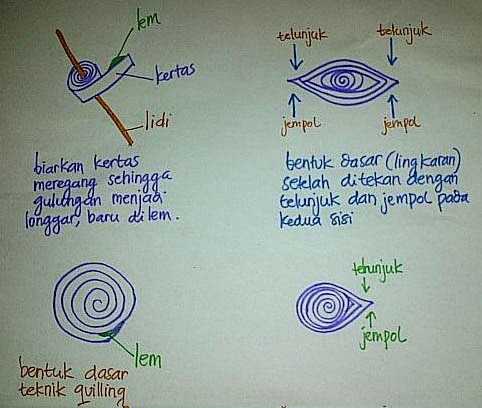 lem
kertas
lidi
biarkan kertas
meregang sehingga
gulungan menjadi
longgar, baru dilem.
telunjuk telunjuk
jempol jempol
bentuk dasar (lingkaran)
setelah ditekan dengan
telunjuk dan jempol pada
kedua sisi
lem
bentuk dasar
teknik quilling
telunjuk
jempol